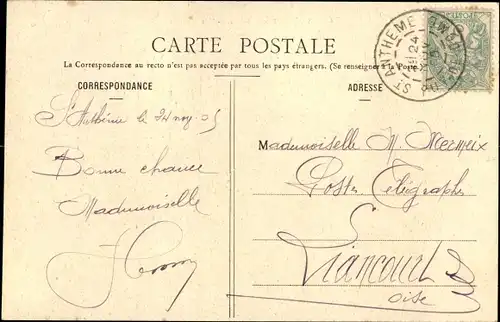 CARTE POSTALE
La Correspondance au recto n'est pas acceptée par tous les pays étrangers. (Se renseigner à la Poste.)
CORRESPONDANCE
ADRESSE
St Anthème le 24 nov. 05
Bonne chance
Mademoiselle
Mademoiselle M. Mermeix
Postes Télégraphes
Liancourt
Oise
ST ANTHEME
PUY-DE-DOME
24